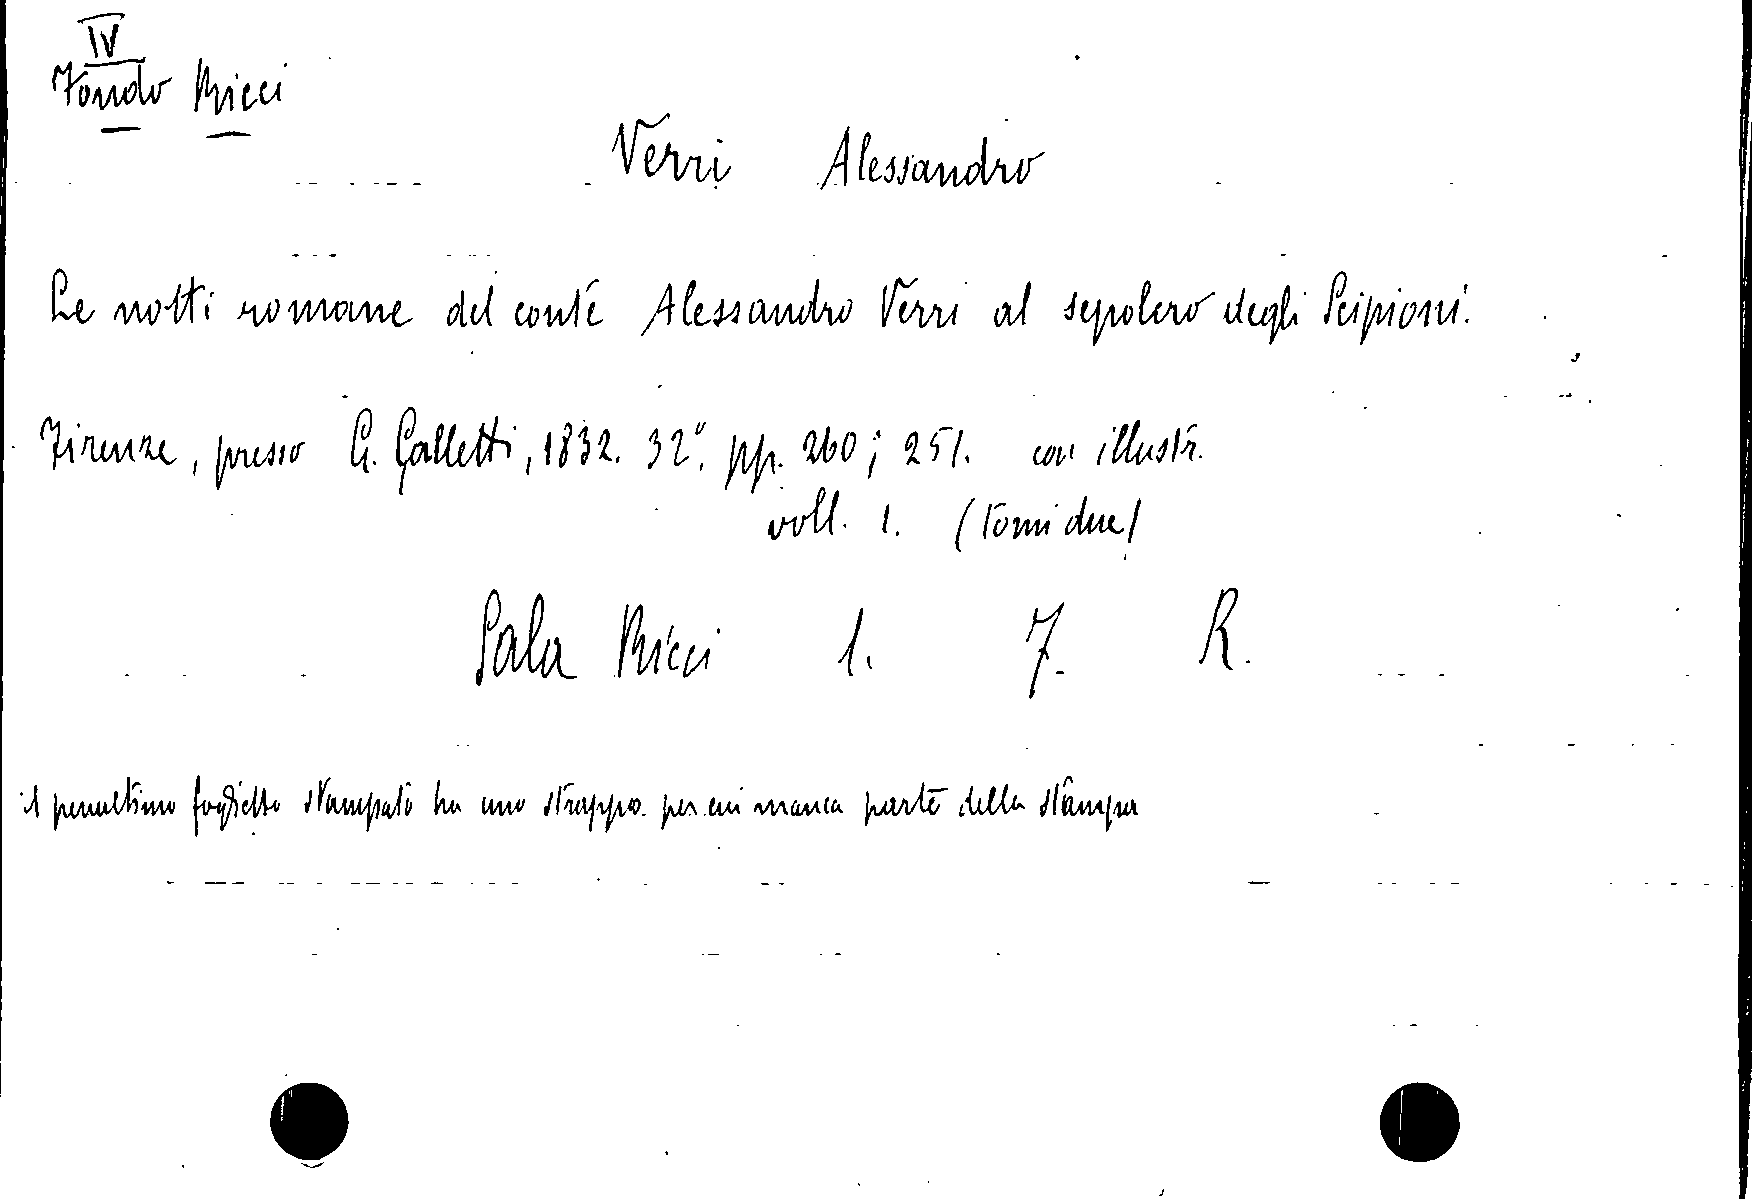 IV
Fondo Ricci
Verri Alessandro
Le notti romane del conte Alessandro Verri al sepolcro degli Scipioni.
Firenze, presso G. Galletti, 1832. 32°. pp. 260; 251. con illustr.
voll. 1. (tomi due)
Sala Ricci 1. 7. R.
il penultimo foglietto stampato ha uno strappo per cui manca parte della stampa